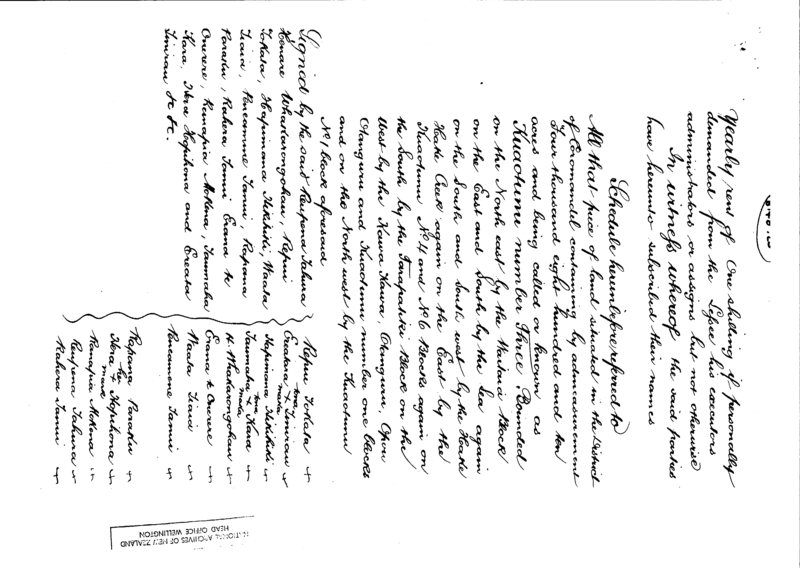 Yearly rent of One shilling if personally
demanded from the Lessee his executors
administrators or assigns but not otherwise
In witness whereof the said parties
have hereunto subscribed their names
Schedule hereinbefore referred to
All that piece of land situated in the District
of Coromandel containing by admeasurement
Four thousand eight hundred and ten
acres and being called or known as
Kuaotunu number Three. Bounded
on the North east by the Waitaia Block
on the East and South by the Sea again
on the South and South west by the
Creek again on the East by the
Kuaotunu No 4 and No 6 Blocks again on
the South by the Block on the
West by the Kawa Kawa, Otanguru,
Otanguru and Kuaotunu number one blocks
and on the North west by the Kuaotunu
No 1 block aforesaid
Signed by the said Reupena Tahura
Whakarongohau, Repiu
Tokata, Hapimana Waata
Tiaia, Pineamine Tanui, Rapana
Paraku, Rahera Tanui Erana te
Onerere, Renapia Mokena, Taumaha
Kara, Hera Hopihona and Ereatara
Timrau &c &c.
Repiu Tokata +
Ereatara + Timrau
mark
Hapimana +
Taumaha + Kara
mark
H. Whakarongohau +
Erana te Onerere +
Waata Tiaia +
Pineamene Tanui +
Rapana Paraku +
her
Hera + Hopihona +
mark
Renapia Mokena +
Reupena Tahura +
Rahera Tanui +
NATIONAL ARCHIVES OF NEW ZEALAND
HEAD OFFICE WELLINGTON